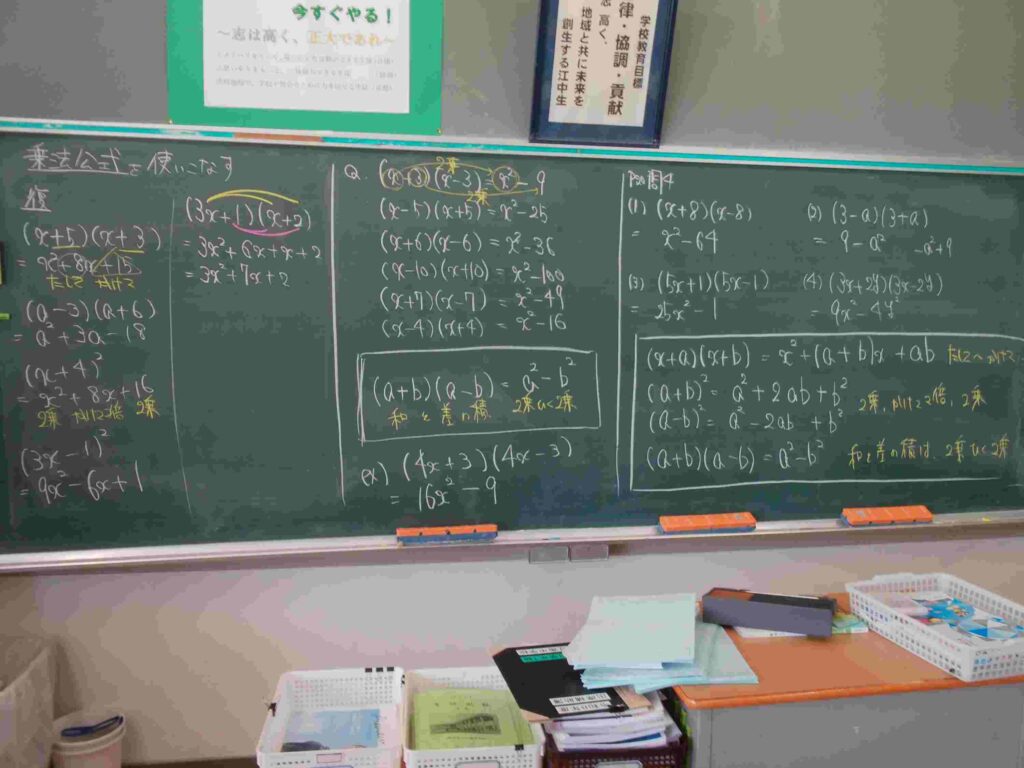 今すぐやる!
~志は高く、正大であれ~
学校教育目標
律・協調・貢献
志高く、
地域と共に未来を
創生する江中生
乗法公式を使いこなす
復
(x+5)(x+3)
= x²+8x+15
たして かけて
(a-3)(a+6)
= a²+3a-18
(x+4)²
= x²+8x+16
2乗 かけて2倍 2乗
(3x-1)²
= 9x²-6x+1
(3x+1)(x+2)
= 3x²+6x+x+2
= 3x²+7x+2
Q. (x+3)(x-3) = x²-9
2乗
2乗
(x-5)(x+5) = x²-25
(x+6)(x-6) = x²-36
(x-10)(x+10) = x²-100
(x+7)(x-7) = x²-49
(x-4)(x+4) = x²-16
(a+b)(a-b) = a²-b²
和と差の積 2乗ひく2乗
ex) (4x+3)(4x-3)
= 16x²-9
問4
(1) (x+8)(x-8)
= x²-64
(2) (3-a)(3+a)
= 9-a² -a²+9
(3) (5x+1)(5x-1)
= 25x²-1
(4) (3x+2y)(3x-2y)
= 9x²-4y²
(x+a)(x+b) = x²+(a+b)x+ab たして かけて
(a+b)² = a²+2ab+b²
(a-b)² = a²-2ab+b²
2乗、かけて2倍、2乗
(a+b)(a-b) = a²-b² 和と差の積は、2乗ひく2乗